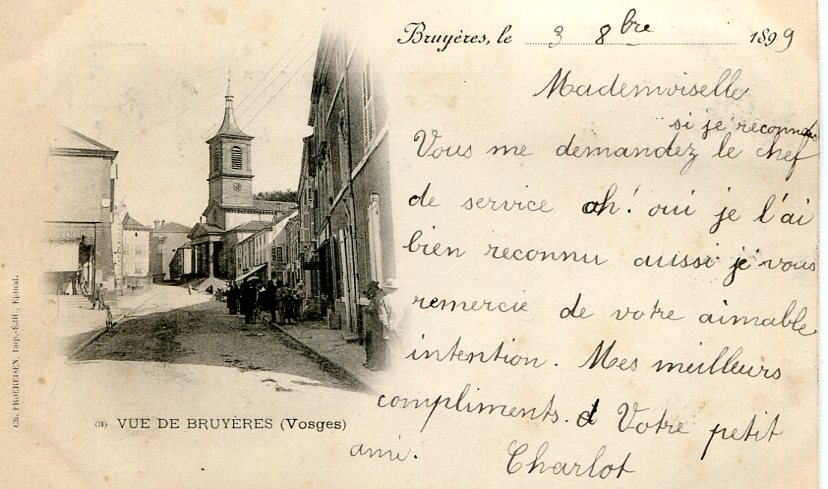 Bruyères, le 3 8bre 1899
Mademoiselle
si je reconnais
Vous me demandez le chef
de service oh! oui je l'ai
bien reconnu aussi je vous
remercie de votre aimable
intention. Mes meilleurs
compliments. Votre petit
ami. Charlot
(3) VUE DE BRUYÈRES (Vosges)
Ch. FROEREISEN, Imp.-Édit., Epinal.